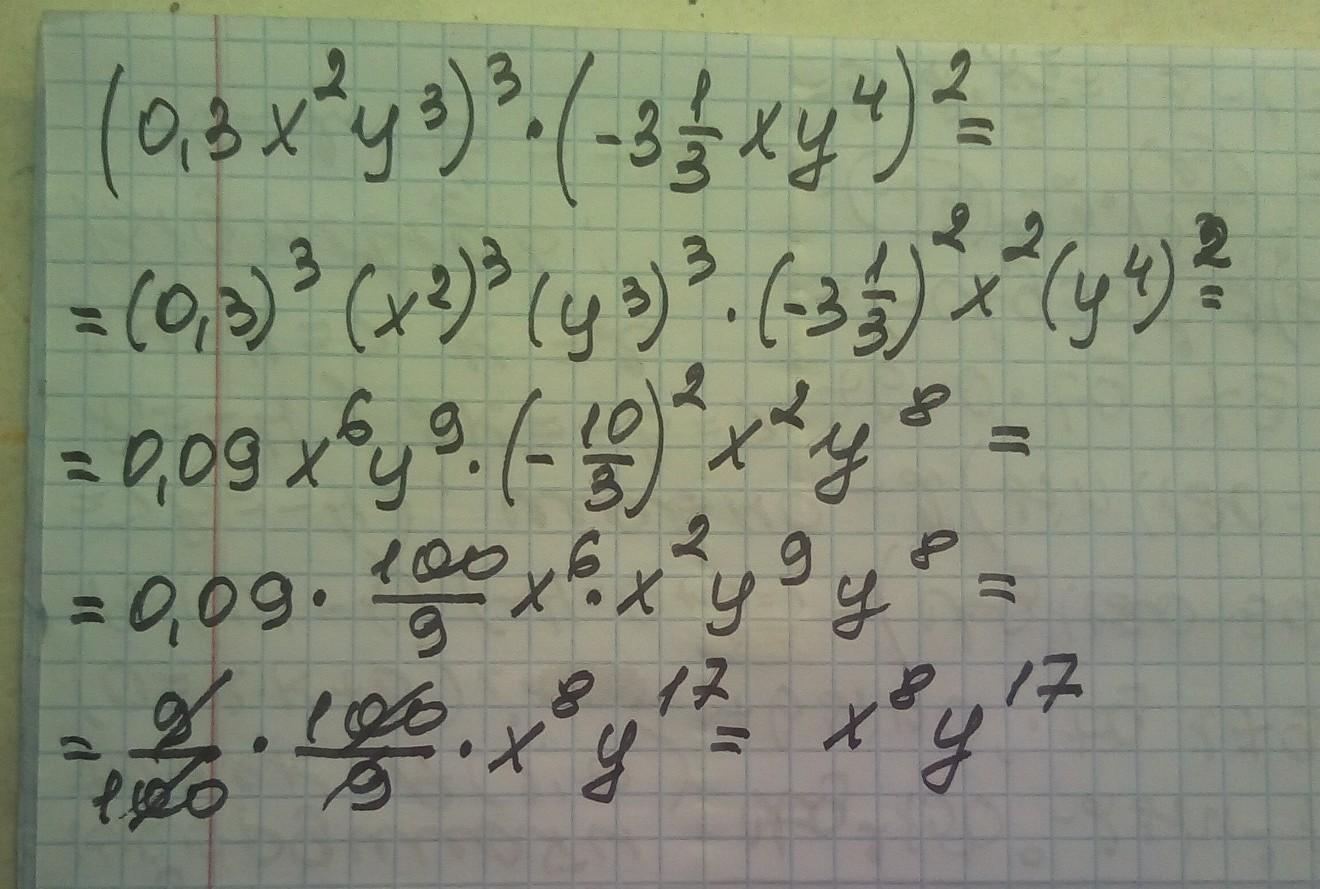 (0,3x²y³)³·(-3 1/3 xy⁴)²=
=(0,3)³(x²)³(y³)³·(-3 1/3)²x²(y⁴)²=
=0,09x⁶y⁹·(-10/3)²x²y⁸=
=0,09·100/9 x⁶·x²y⁹y⁸=
=9/100·100/9·x⁸y¹⁷=x⁸y¹⁷